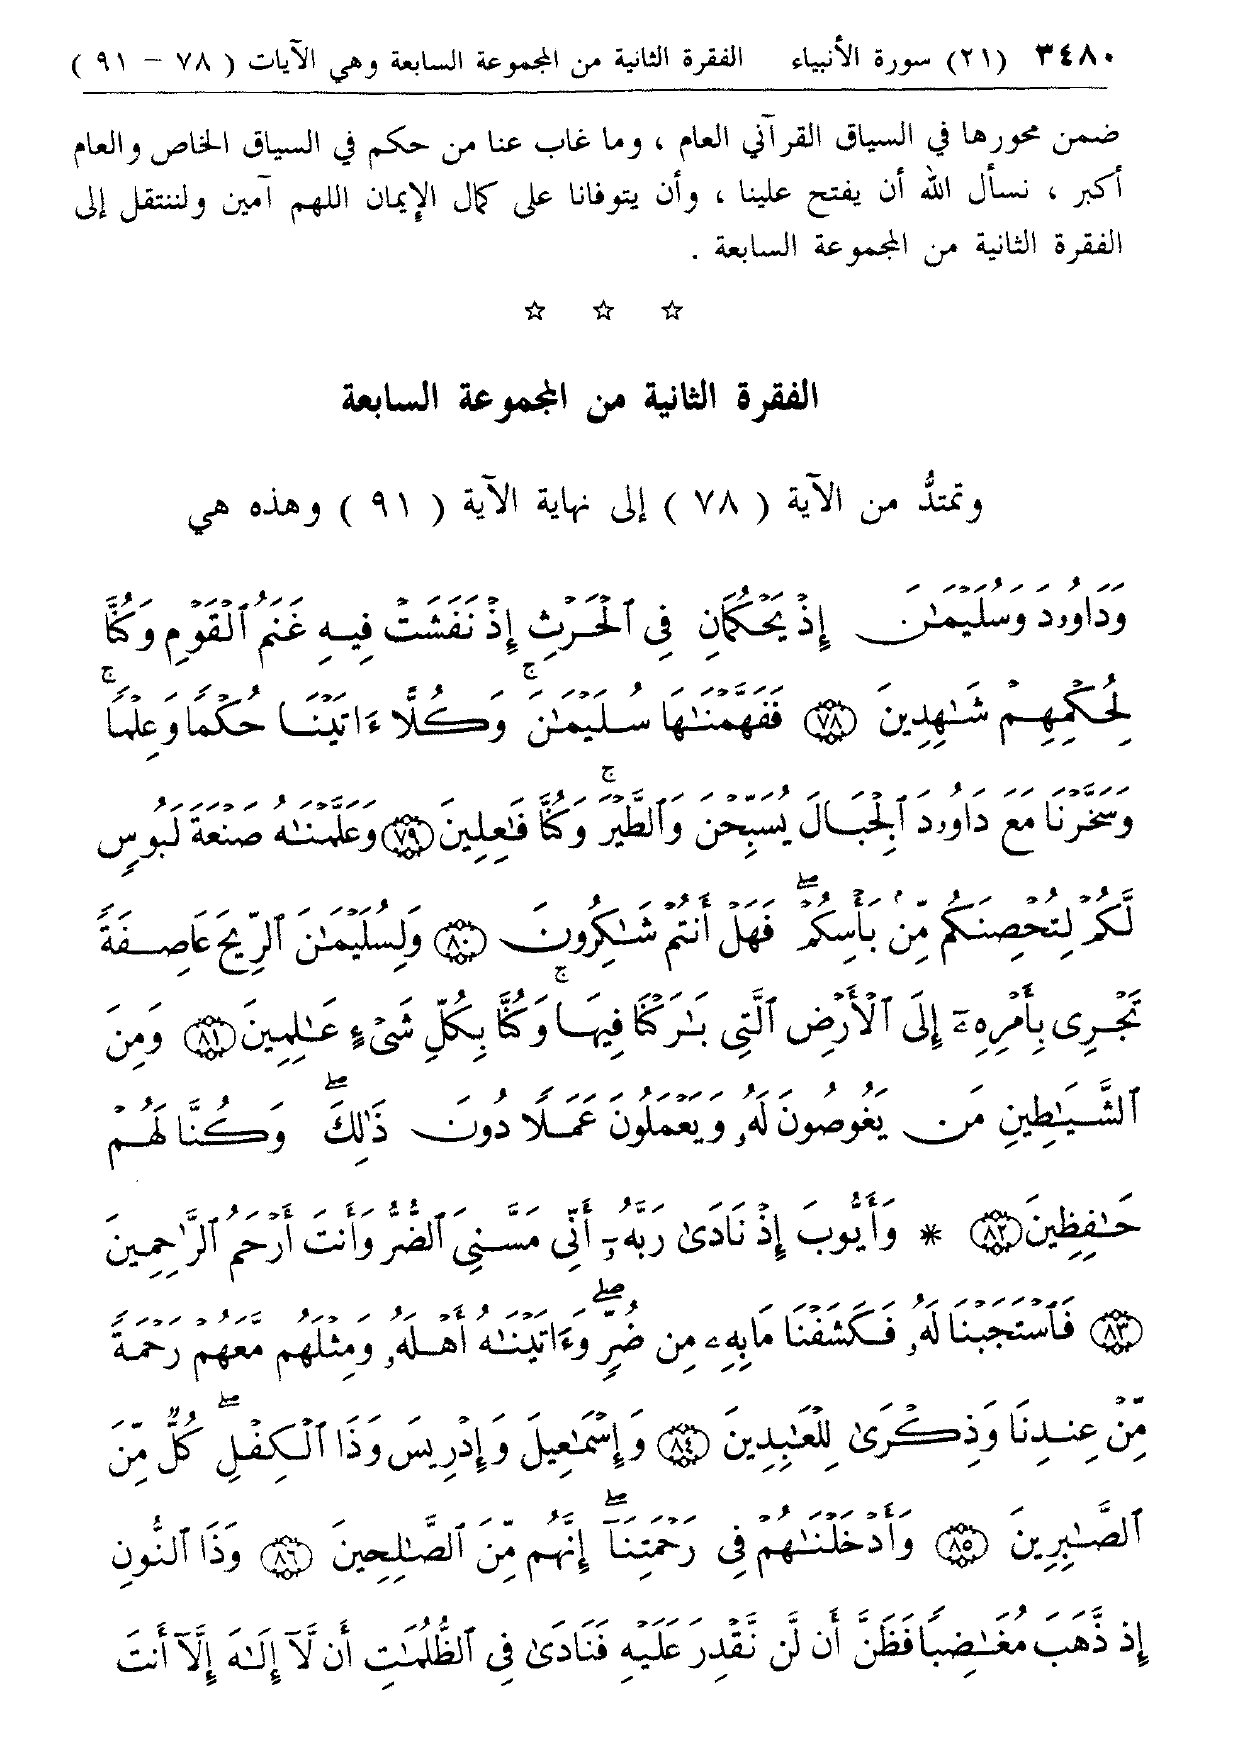 ٣٤٨٠ (٢١) سورة الأنبياء الفقرة الثانية من المجموعة السابعة وهي الآيات ( ٧٨ – ٩١ )
ضمن محورها في السياق القرآني العام ، وما غاب عنا من حكم في السياق الخاص والعام
أكبر ، نسأل الله أن يفتح علينا ، وأن يتوفانا على كمال الإيمان اللهم آمين ولننتقل إلى
الفقرة الثانية من المجموعة السابعة .
☆ ☆ ☆
الفقرة الثانية من المجموعة السابعة
وتمتدُّ من الآية ( ٧٨ ) إلى نهاية الآية ( ٩١ ) وهذه هي
وَدَاوُۥدَ وَسُلَيْمَـٰنَ إِذْ يَحْكُمَانِ فِى ٱلْحَرْثِ إِذْ نَفَشَتْ فِيهِ غَنَمُ ٱلْقَوْمِ وَكُنَّا
لِحُكْمِهِمْ شَـٰهِدِينَ ﴿٧٨﴾ فَفَهَّمْنَـٰهَا سُلَيْمَـٰنَ ۚ وَكُلًّا ءَاتَيْنَا حُكْمًا وَعِلْمًا ۚ
وَسَخَّرْنَا مَعَ دَاوُۥدَ ٱلْجِبَالَ يُسَبِّحْنَ وَٱلطَّيْرَ ۚ وَكُنَّا فَـٰعِلِينَ ﴿٧٩﴾ وَعَلَّمْنَـٰهُ صَنْعَةَ لَبُوسٍ
لَّكُمْ لِتُحْصِنَكُم مِّنۢ بَأْسِكُمْ ۖ فَهَلْ أَنتُمْ شَـٰكِرُونَ ﴿٨٠﴾ وَلِسُلَيْمَـٰنَ ٱلرِّيحَ عَاصِفَةً
تَجْرِى بِأَمْرِهِۦٓ إِلَى ٱلْأَرْضِ ٱلَّتِى بَـٰرَكْنَا فِيهَا ۚ وَكُنَّا بِكُلِّ شَىْءٍ عَـٰلِمِينَ ﴿٨١﴾ وَمِنَ
ٱلشَّيَـٰطِينِ مَن يَغُوصُونَ لَهُۥ وَيَعْمَلُونَ عَمَلًا دُونَ ذَٰلِكَ ۖ وَكُنَّا لَهُمْ
حَـٰفِظِينَ ﴿٨٢﴾ * وَأَيُّوبَ إِذْ نَادَىٰ رَبَّهُۥٓ أَنِّى مَسَّنِىَ ٱلضُّرُّ وَأَنتَ أَرْحَمُ ٱلرَّٰحِمِينَ
﴿٨٣﴾ فَٱسْتَجَبْنَا لَهُۥ فَكَشَفْنَا مَا بِهِۦ مِن ضُرٍّ ۖ وَءَاتَيْنَـٰهُ أَهْلَهُۥ وَمِثْلَهُم مَّعَهُمْ رَحْمَةً
مِّنْ عِندِنَا وَذِكْرَىٰ لِلْعَـٰبِدِينَ ﴿٨٤﴾ وَإِسْمَـٰعِيلَ وَإِدْرِيسَ وَذَا ٱلْكِفْلِ ۖ كُلٌّ مِّنَ
ٱلصَّـٰبِرِينَ ﴿٨٥﴾ وَأَدْخَلْنَـٰهُمْ فِى رَحْمَتِنَآ ۖ إِنَّهُم مِّنَ ٱلصَّـٰلِحِينَ ﴿٨٦﴾ وَذَا ٱلنُّونِ
إِذ ذَّهَبَ مُغَـٰضِبًا فَظَنَّ أَن لَّن نَّقْدِرَ عَلَيْهِ فَنَادَىٰ فِى ٱلظُّلُمَـٰتِ أَن لَّآ إِلَـٰهَ إِلَّآ أَنتَ